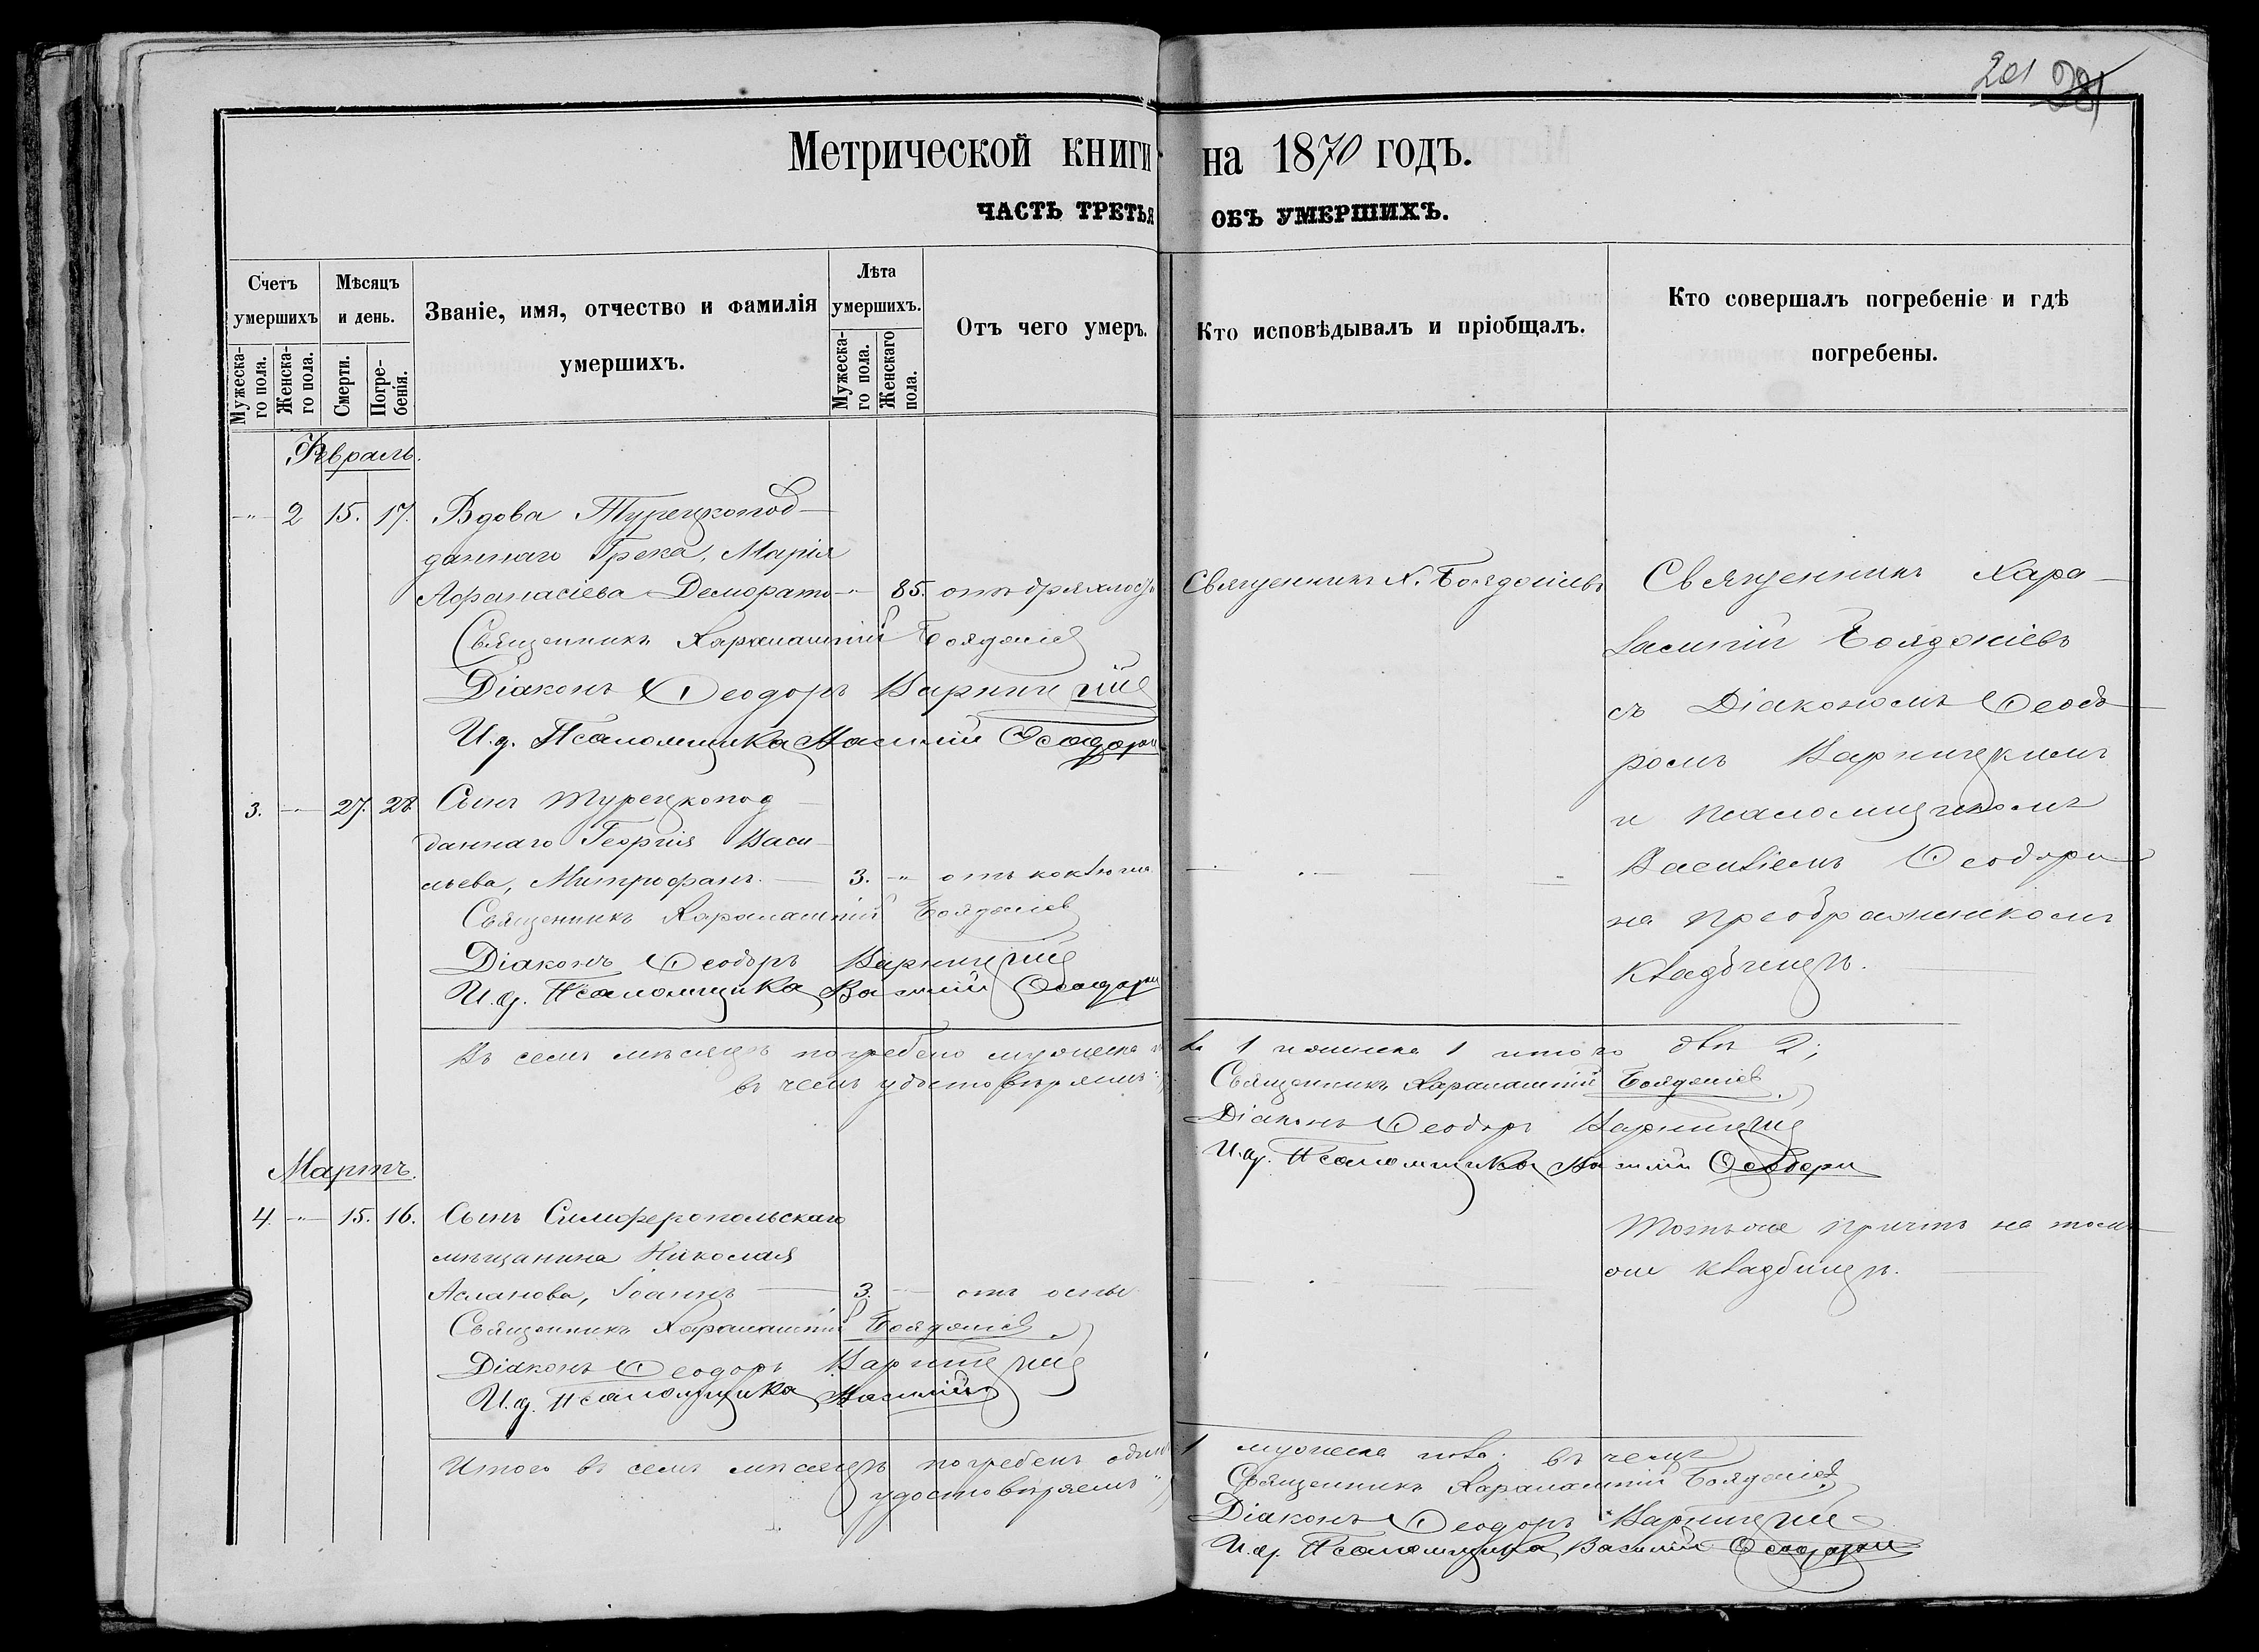 201
Метрической книги на 1870 годъ.
ЧАСТЬ ТРЕТЬЯ ОБЪ УМЕРШИХЪ.
Счетъ умершихъ
Мѣсяцъ и день.
Званіе, имя, отчество и фамилія умершихъ.
Лѣта умершихъ.
Отъ чего умеръ.
Кто исповѣдывалъ и пріобщалъ.
Кто совершалъ погребеніе и гдѣ погребены.
Мужеска-го пола.
Женска-го пола.
Смерти.
Погре-бенія.
Мужеска-го пола.
Женскаго пола.
Февраль.
-"- 2 15. 17. Вдова Турецкопод-
даннаго Грека, Марія
Афанасіева Деморато -"- 85. отъ дряхлости
Священникъ Х. Бояджіевъ
Священникъ Харалампій Бояджіев
Діаконъ Ѳеодоръ Варницкій
И. д. Псаломщика Василій Ѳеодори
Священникъ Хара-
лампій Бояджіевъ
съ Діакономъ Ѳеодо-
ромъ Варницкимъ
и псаломщикомъ
Василіемъ Ѳеодори
на Преображенскомъ
кладбищѣ.
3. -"- 27. 28. Сынъ турецкопод
даннаго Георгія Васи-
льева, Митрофанъ. 3. -"- отъ коклюша
Священникъ Харалампій Бояджіев
Діаконъ Ѳеодоръ Варницкій
И. д. Псаломщика Василій Ѳеодори
Въ семъ мѣсяцѣ погребено мужеска по
ла 1 женска 1 итого два 2;
въ чемъ удостовѣряемъ:
Священникъ Харалампій Бояджіев.
Діаконъ Ѳеодоръ Варницкій
И. д. Псаломщика Василій Ѳеодори
Мартъ.
4. -"- 15. 16. Сынъ Симферопольскаго
мѣщанина Николая
Асланова, Іоаннъ 3. -"- отъ оспы
Священникъ Харалампій Бояджіев.
Діаконъ Ѳеодоръ Варницкій
И. д. Псаломщика Василій
Тотъ же причтъ на томъ
же кладбищѣ.
Итого въ семъ мѣсяцѣ погребенъ одинъ
1 мужеска пола; въ чемъ
удостовѣряемъ
Священникъ Харалампій Бояджіев
Діаконъ Ѳеодоръ Варницкій
И. д. Псаломщика Василій Ѳеодори